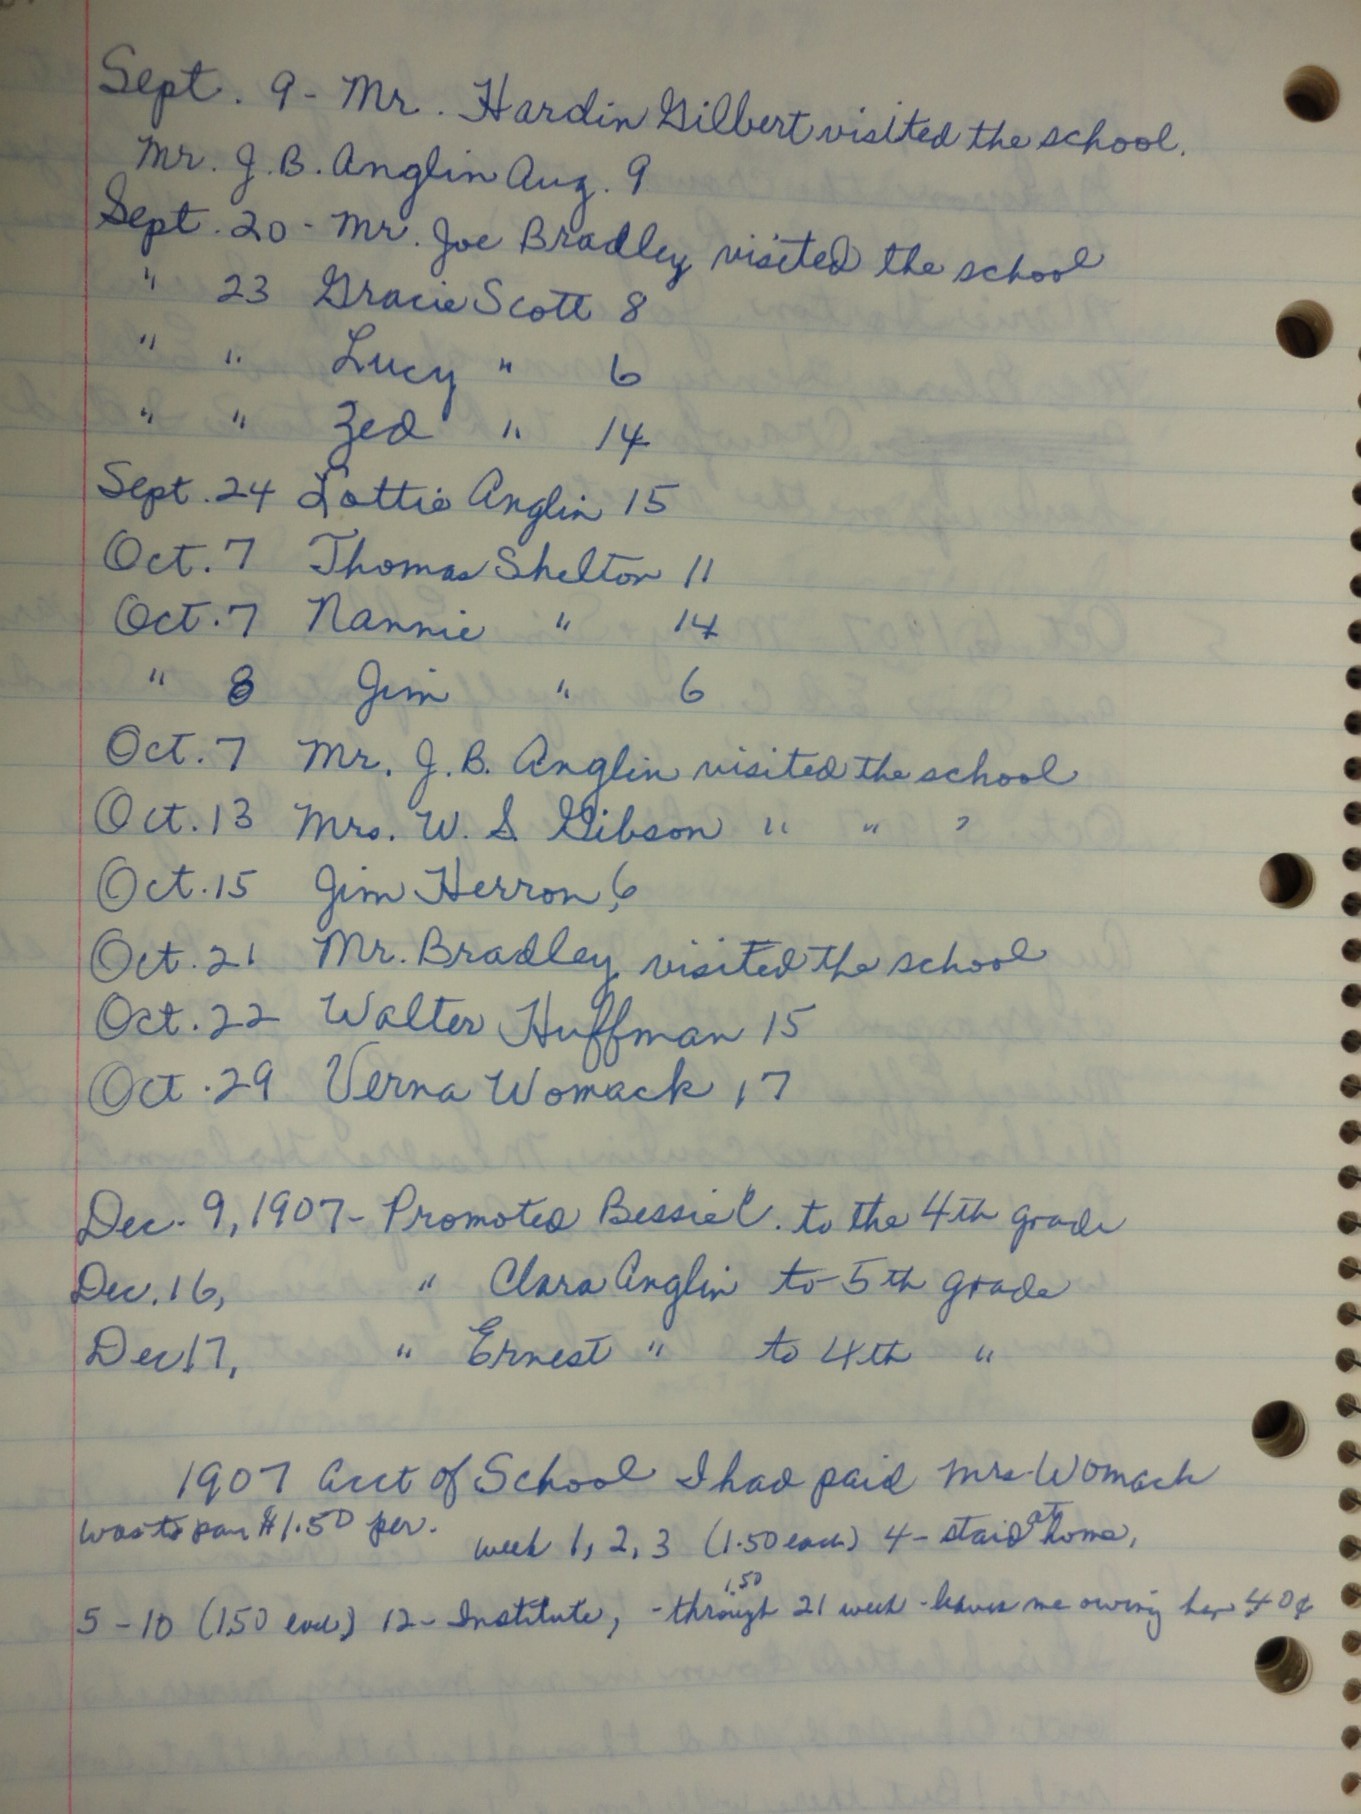 Sept. 9 - Mr. Hardin Gilbert visited the school.
Mr. J. B. Anglin Aug. 9
Sept. 20 - Mr. Joe Bradley visited the school
" 23 Gracie Scott 8
" " Lucy " 6
" " Zed " 14
Sept. 24 Lottie Anglin 15
Oct. 7 Thomas Shelton 11
Oct. 7 Nannie " 14
" 8 Jim " 6
Oct. 7 Mr. J. B. Anglin visited the school
Oct. 13 Mrs. W. S Gibson " " "
Oct. 15 Jim Herron, 6
Oct. 21 Mr. Bradley visited the school
Oct. 22 Walter Huffman 15
Oct. 29 Verna Womack 17
Dec. 9, 1907 - Promoted Bessie C. to the 4th grade
Dec. 16, " Clara Anglin to 5th grade
Dec 17, " Ernest " to 4th "
1907 acct of School I had paid Mrs Womack
was to pay $1.50 per. week 1, 2, 3 (1.50 each) 4 - staid at home,
5 - 10 (1.50 each) 12 - Institute, - 1.50 through 21 week - leaves me owing her 40¢